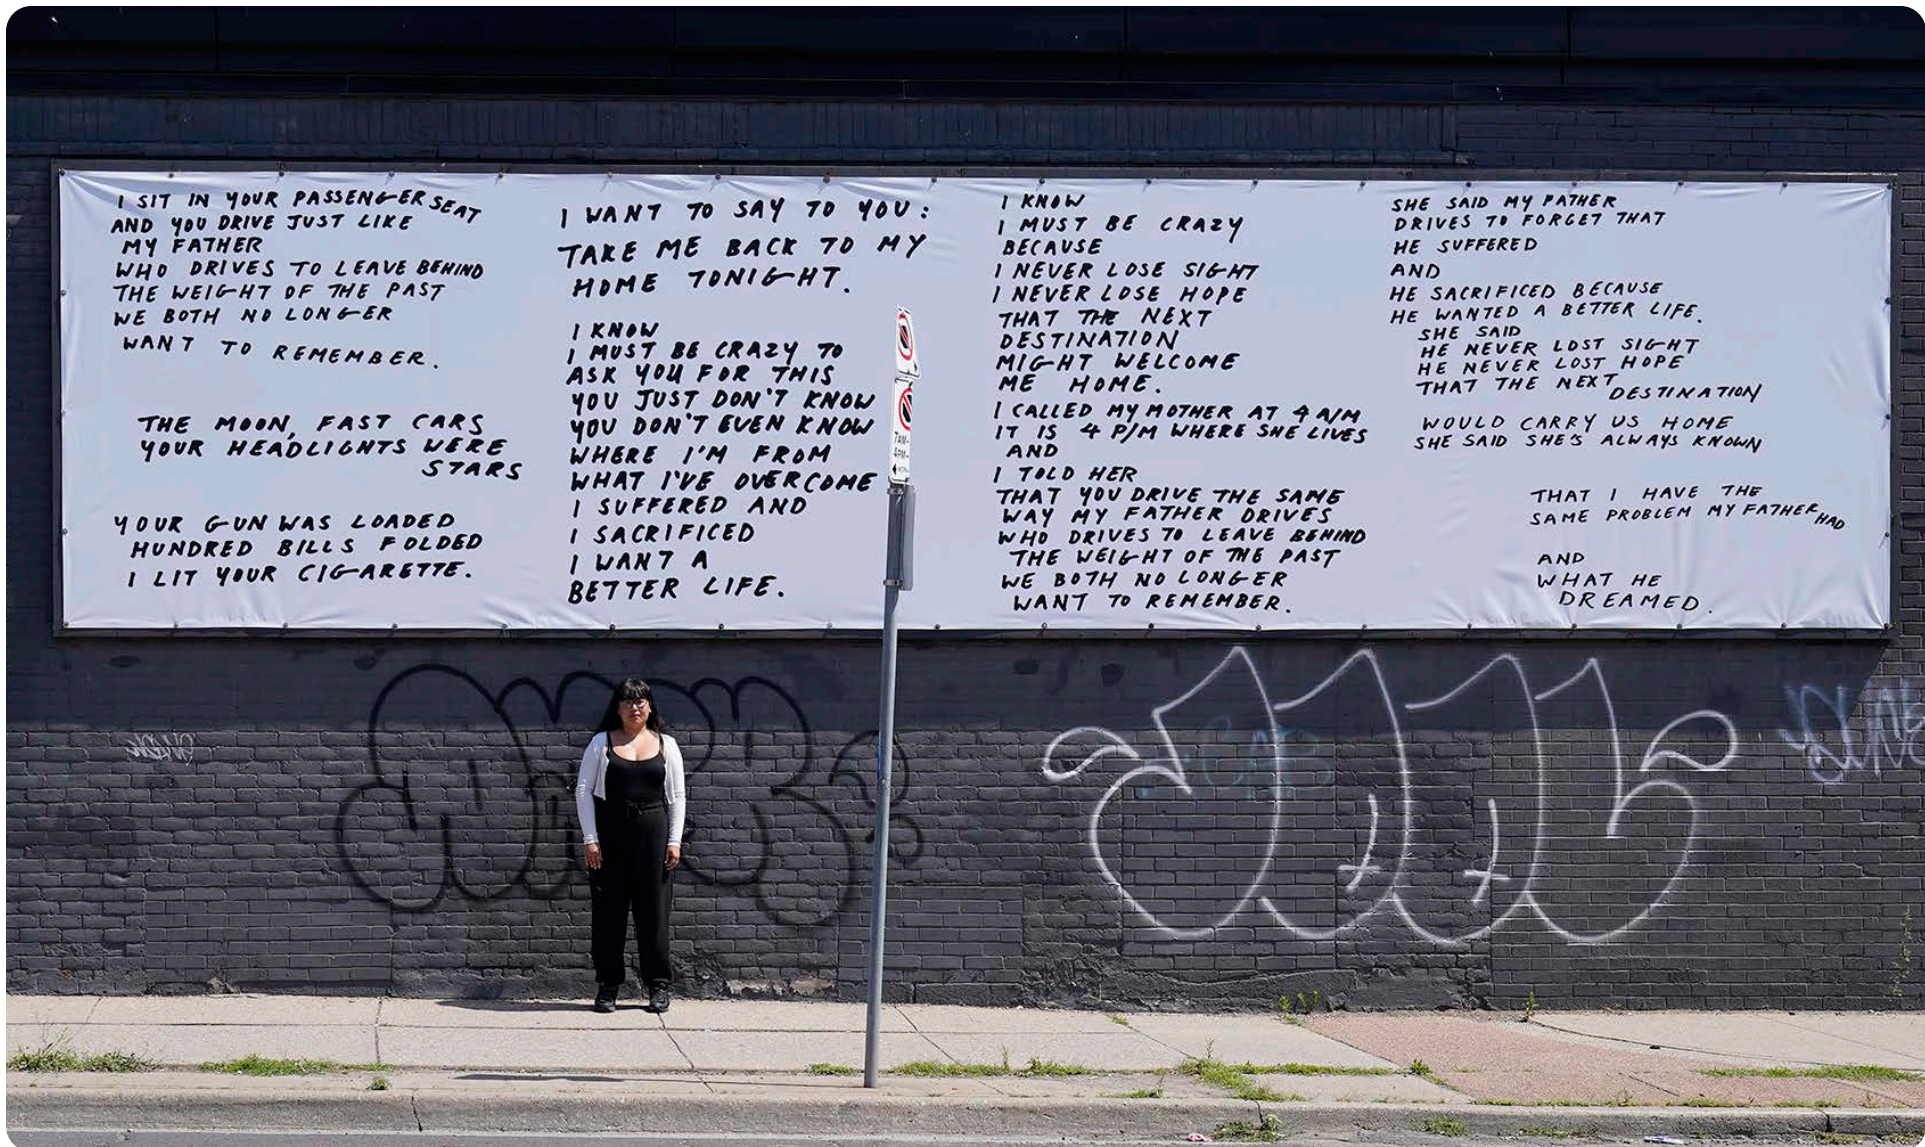 I SIT IN YOUR PASSENGER SEAT
AND YOU DRIVE JUST LIKE
MY FATHER
WHO DRIVES TO LEAVE BEHIND
THE WEIGHT OF THE PAST
WE BOTH NO LONGER
WANT TO REMEMBER.
THE MOON, FAST CARS
YOUR HEADLIGHTS WERE
STARS
YOUR GUN WAS LOADED
HUNDRED BILLS FOLDED
I LIT YOUR CIGARETTE.
I WANT TO SAY TO YOU:
TAKE ME BACK TO MY
HOME TONIGHT.
I KNOW
I MUST BE CRAZY TO
ASK YOU FOR THIS
YOU JUST DON'T KNOW
YOU DON'T EVEN KNOW
WHERE I'M FROM
WHAT I'VE OVERCOME
I SUFFERED AND
I SACRIFICED
I WANT A
BETTER LIFE.
I KNOW
I MUST BE CRAZY
BECAUSE
I NEVER LOSE SIGHT
I NEVER LOSE HOPE
THAT THE NEXT
DESTINATION
MIGHT WELCOME
ME HOME.
I CALLED MY MOTHER AT 4 A/M
IT IS 4 P/M WHERE SHE LIVES
AND
I TOLD HER
THAT YOU DRIVE THE SAME
WAY MY FATHER DRIVES
WHO DRIVES TO LEAVE BEHIND
THE WEIGHT OF THE PAST
WE BOTH NO LONGER
WANT TO REMEMBER.
SHE SAID MY FATHER
DRIVES TO FORGET THAT
HE SUFFERED
AND
HE SACRIFICED BECAUSE
HE WANTED A BETTER LIFE.
SHE SAID
HE NEVER LOST SIGHT
HE NEVER LOST HOPE
THAT THE NEXT DESTINATION
WOULD CARRY US HOME
SHE SAID SHE'S ALWAYS KNOWN
THAT I HAVE THE
SAME PROBLEM MY FATHER HAD
AND
WHAT HE
DREAMED.
7AM-